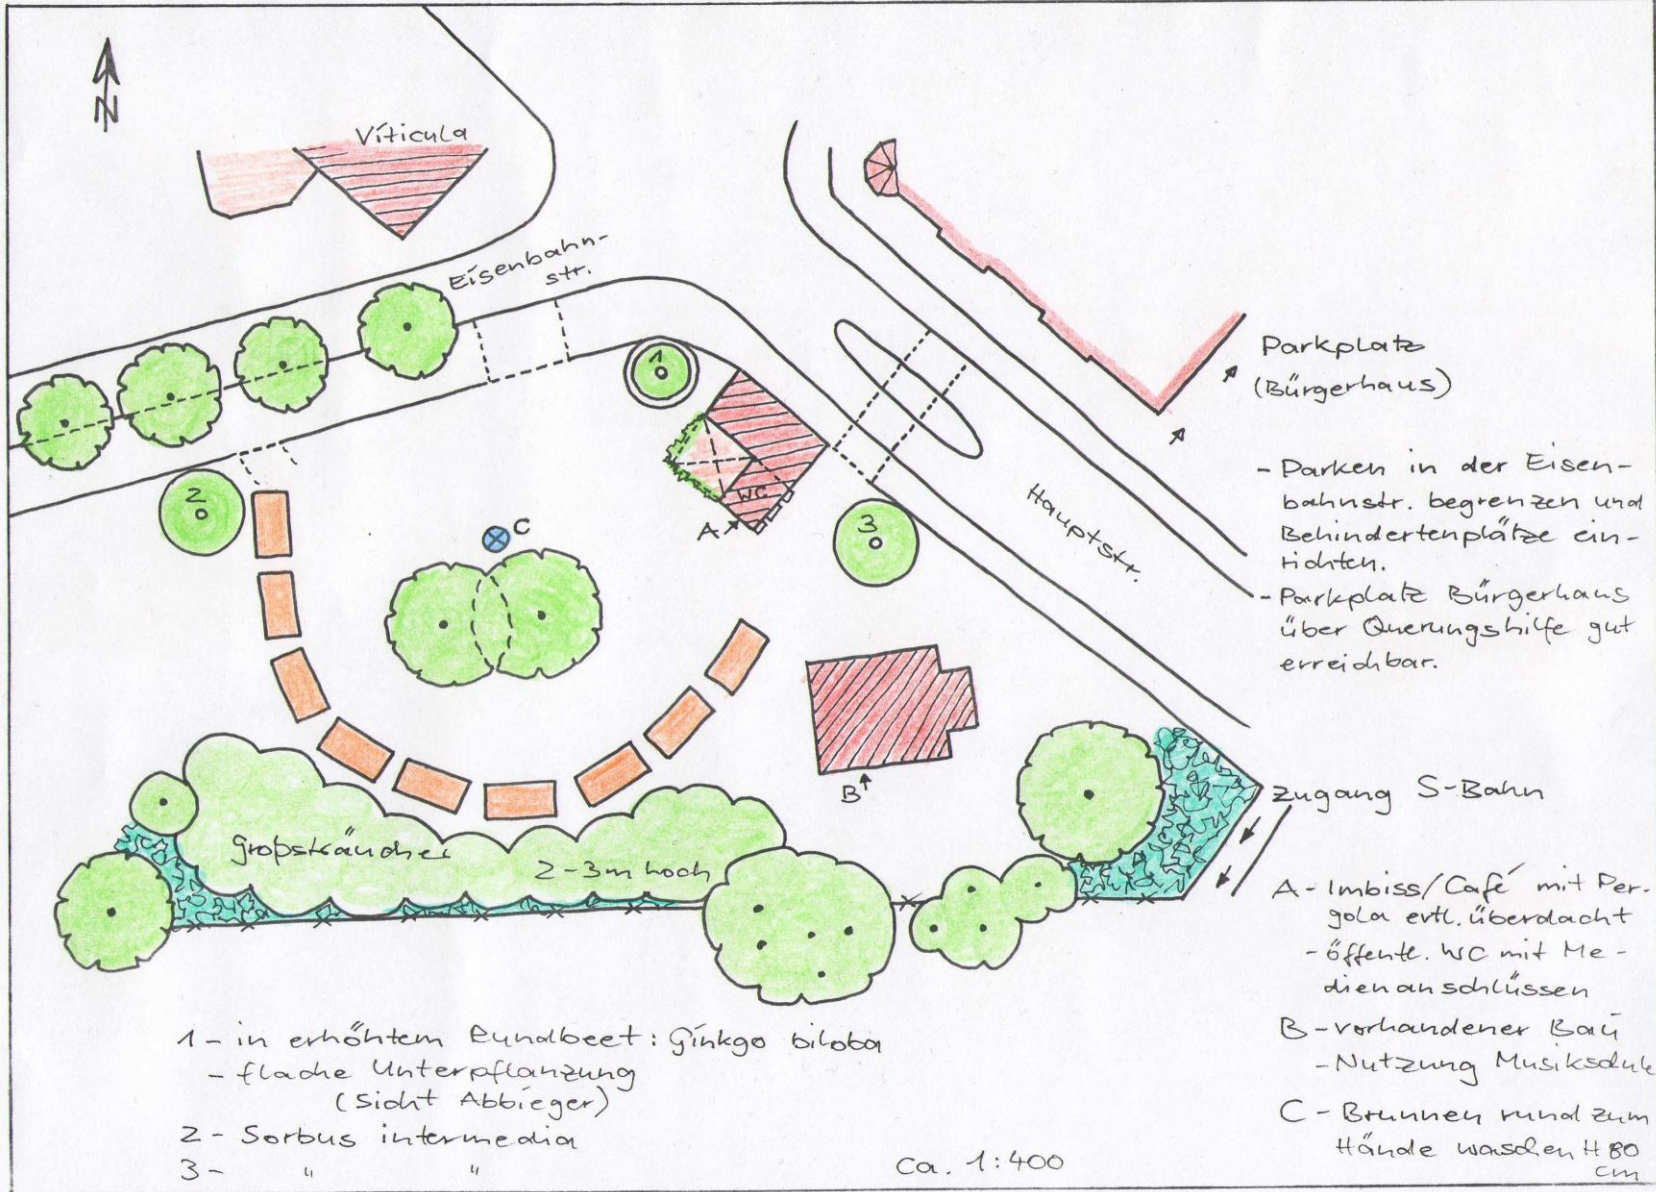 N
Viticula
Eisenbahn-
str.
1
Parkplatz
(Bürgerhaus)
- Parken in der Eisen-
bahnstr. begrenzen und
Behindertenplätze ein-
richten.
- Parkplatz Bürgerhaus
über Querungshilfe gut
erreichbar.
Hauptstr.
2
C
WC
A
3
B
Zugang S-Bahn
Großsträucher
2-3m hoch
A - Imbiss/Café mit Per-
gola evtl. überdacht
- öffentl. WC mit Me-
dienanschlüssen
B - vorhandener Bau
- Nutzung Musikschule
C - Brunnen rund zum
Hände waschen H 80
cm
1 - in erhöhtem Rundbeet: Ginkgo biloba
- flache Unterpflanzung
(Sicht Abbieger)
2 - Sorbus intermedia
3 - " "
ca. 1:400